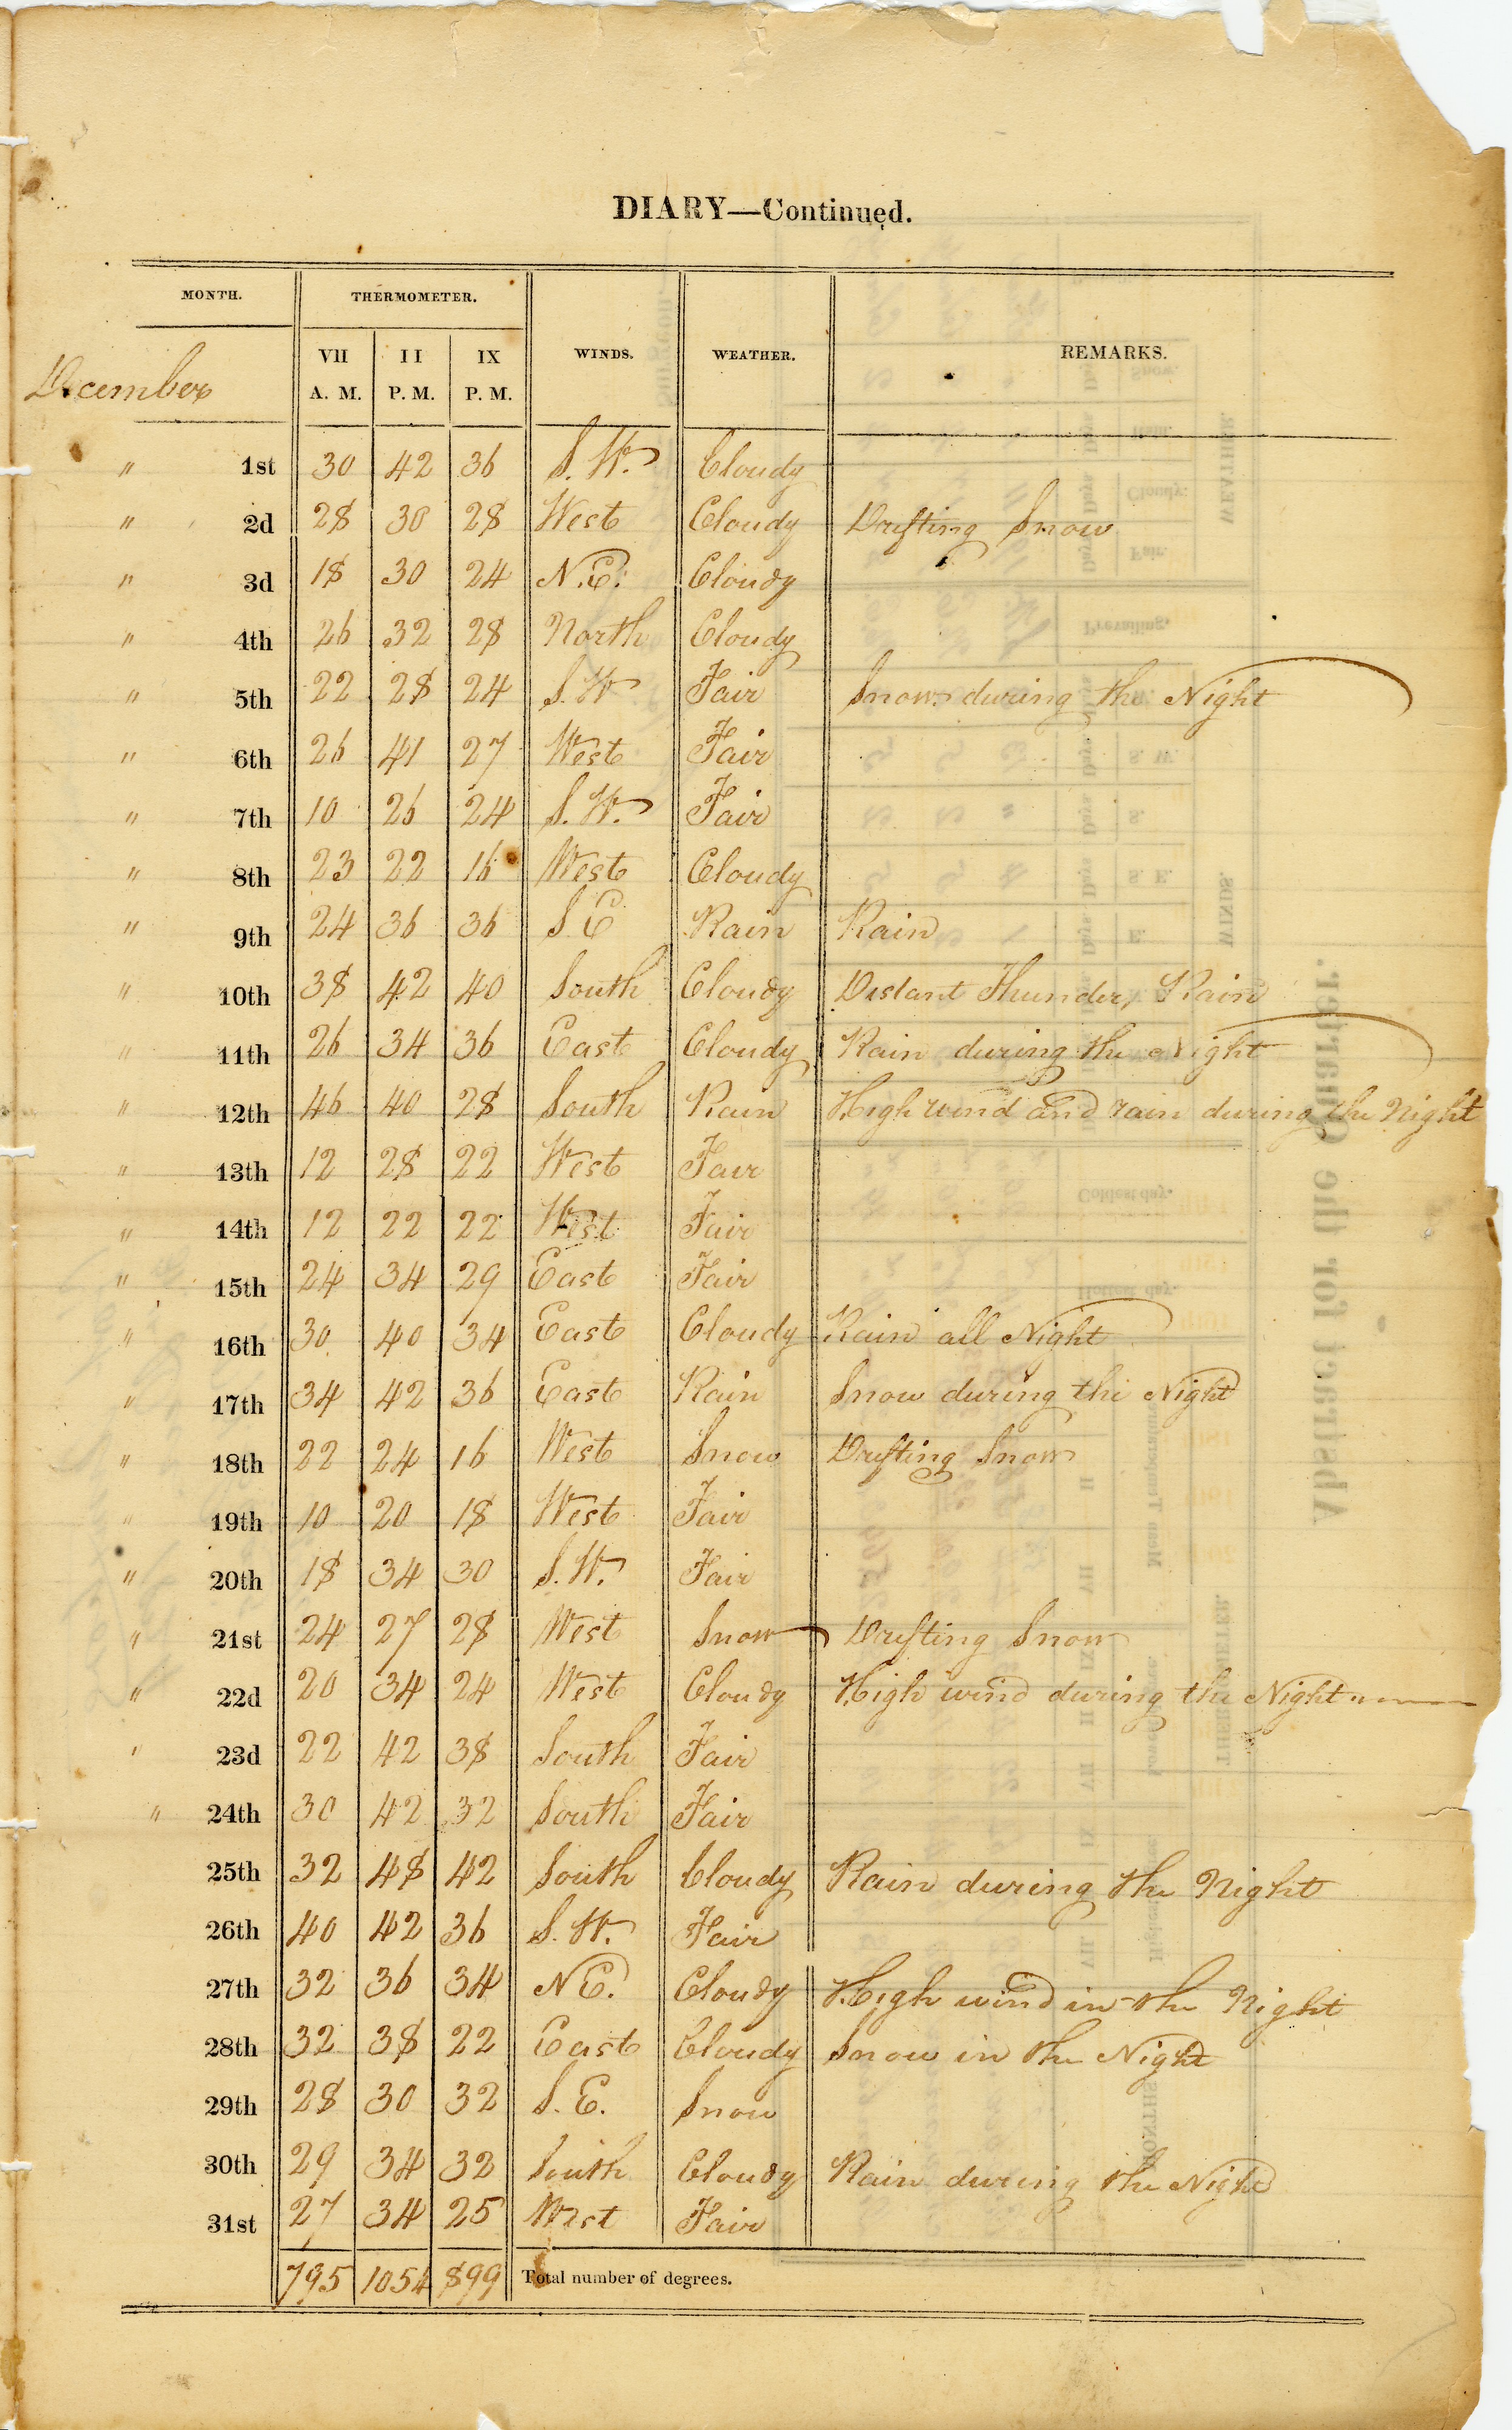 DIARY—Continued.
MONTH. THERMOMETER. WINDS. WEATHER. REMARKS.
December VII A. M. II P. M. IX P. M.
" 1st 30 42 36 S. W. Cloudy
" 2d 28 30 28 West Cloudy Drifting Snow
" 3d 18 30 24 N. E. Cloudy
" 4th 26 32 28 North Cloudy
" 5th 22 28 24 S. W Fair Snow during the Night
" 6th 26 41 27 West Fair
" 7th 10 26 24 S. W. Fair
" 8th 23 22 16 West Cloudy
" 9th 24 36 36 S E Rain Rain
" 10th 38 42 40 South Cloudy Distant Thunder, Rain
" 11th 26 34 36 East Cloudy Rain during the Night
" 12th 46 40 28 South Rain High wind and rain during the Night
" 13th 12 28 22 West Fair
" 14th 12 22 22 West Fair
" 15th 24 34 29 East Fair
" 16th 30 40 34 East Cloudy Rain all Night
" 17th 34 42 36 East Rain Snow during the Night
" 18th 22 24 16 West Snow Drifting Snow
" 19th 10 20 18 West Fair
" 20th 18 34 30 S. W. Fair
" 21st 24 27 28 West Snow Drifting Snow
" 22d 20 34 24 West Cloudy High wind during the Night
" 23d 22 42 38 South Fair
" 24th 30 42 32 South Fair
25th 32 48 42 South Cloudy Rain during the Night
26th 40 42 36 S. W. Fair
27th 32 36 34 N E. Cloudy High wind in the Night
28th 32 38 22 East Cloudy Snow in the Night
29th 28 30 32 S. E. Snow
30th 29 34 32 South Cloudy Rain during the Night
31st 27 34 25 West Fair
795 1054 899 Total number of degrees.